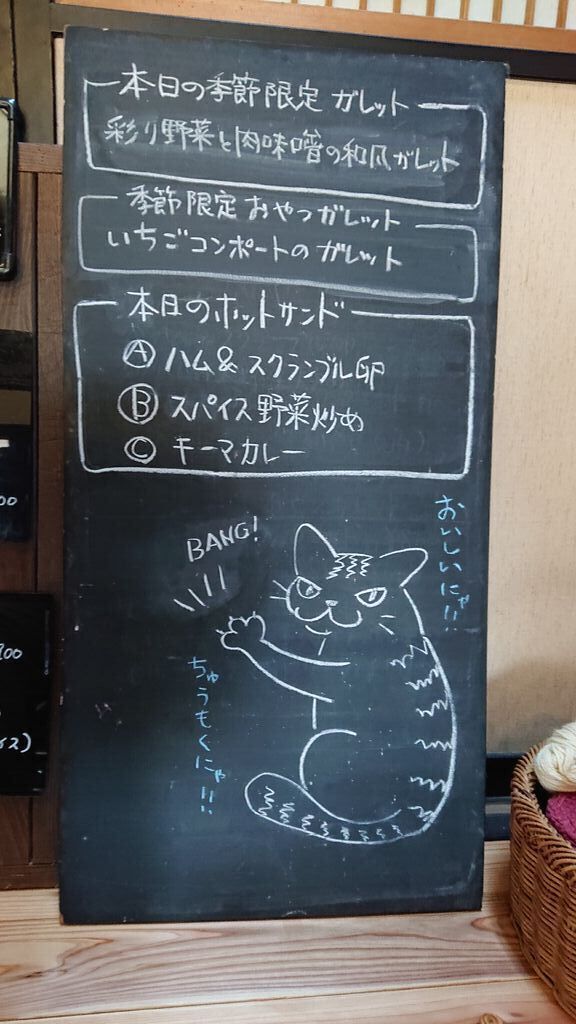 本日の季節限定 ガレット
彩り野菜と肉味噌の和風ガレット
季節限定おやつガレット
いちごコンポートのガレット
本日のホットサンド
Ⓐ ハム&スクランブル卵
Ⓑ スパイス野菜炒め
Ⓒ キーマカレー
おいしいにゃ!!
BANG!
ちゅうもくにゃ!!
00
900
イス)